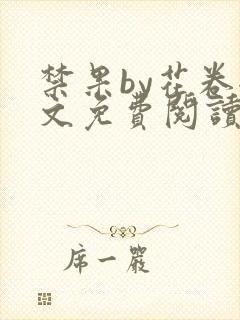 禁果by花卷
文免费阅读
席一岩